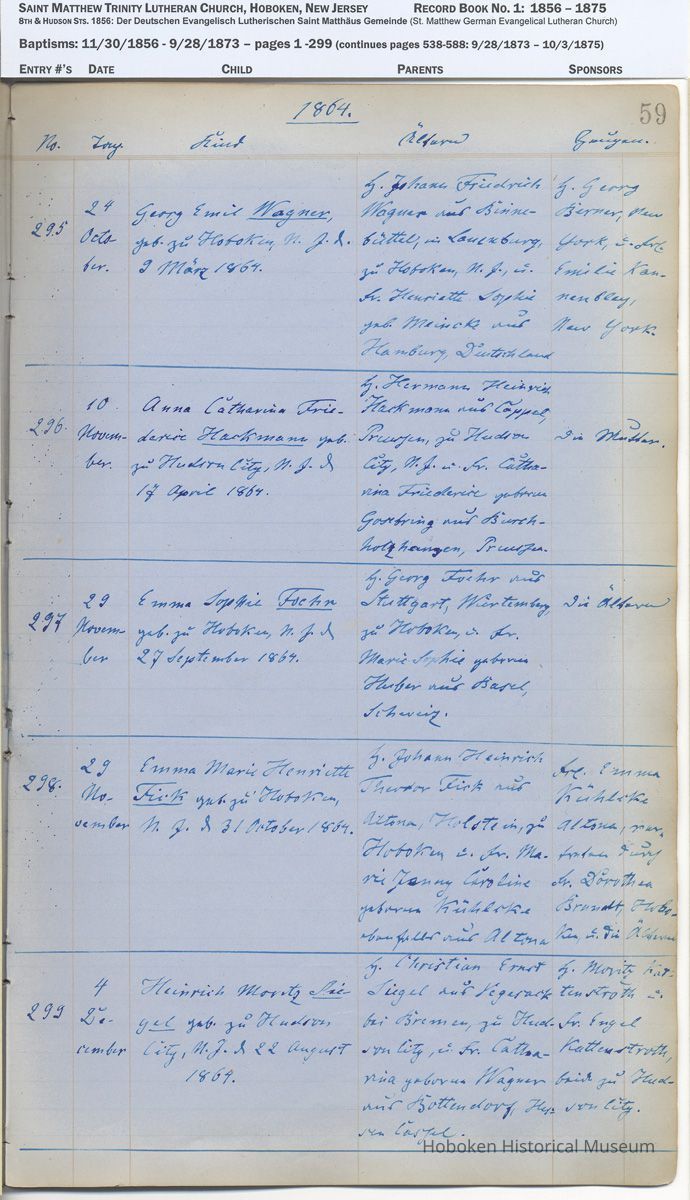 SAINT MATTHEW TRINITY LUTHERAN CHURCH, HOBOKEN, NEW JERSEY RECORD BOOK NO. 1: 1856 – 1875
8TH & HUDSON STS. 1856: Der Deutschen Evangelisch Lutherischen Saint Matthäus Gemeinde (St. Matthew German Evangelical Lutheran Church)
Baptisms: 11/30/1856 - 9/28/1873 – pages 1 -299 (continues pages 538-588: 9/28/1873 – 10/3/1875)
ENTRY #'S DATE CHILD PARENTS SPONSORS
1864.
59
No. Tag. Kind Ältern Zeugen.
295
24
Octo-
ber.
Georg Emil Wagner,
geb. zu Hoboken, N. J. d.
9 März 1864.
H. Johann Friedrich
Wagner aus Binne-
büttel, in Lauenburg,
zu Hoboken, N. J., u.
Fr. Henriette Sophie
geb. Meincke aus
Hamburg, Deutschland
H. Georg
Berner, New
York, u. Frl.
Emilie Kan-
nenbley,
New York.
296.
10
Novem-
ber.
Anna Catharina Frie-
dericе Hackmann geb.
zu Hudson City, N. J. d
17 April 1864.
H. Hermann Heinrich
Hackmann aus Cappel,
Preussen, zu Hudson
City, N. J. u. Fr. Catha-
rina Friederice geboren
aus Burch-
holzhausen, Preussen.
Die Mutter.
297
29
Novem
ber
Emma Sophie Foehr
geb. zu Hoboken, N. J. d
27 September 1864.
H. Georg Foehr aus
Stuttgart, Würtemberg,
zu Hoboken, u. Fr.
Marie Sophie geboren
Huber aus Basel,
Schweiz.
Die Ältern
298.
29
No-
vember
Emma Marie Henriette
Fick geb. zu Hoboken,
N. J. d 31 October 1864.
H. Johann Heinrich
Theodor Fick aus
Altona, Holstein, zu
Hoboken u. Fr. Ma-
rie Jenny Caroline
geboren Kühlcke
ebenfalls aus Altona
Frl. Emma
Kühlcke
Altona, ver-
treten durch
Fr. Dorothea
Brandt, Hobo-
ken, u. die Ältern
299
4
De-
cember
Heinrich Moritz Sie-
gel geb. zu Hudson
City, N. J. d 22 August
1864.
H. Christian Ernst
Siegel aus Vegesack
bei Bremen, zu Hud-
son City, u. Fr. Catha-
rina geboren Wagner
aus Bottendorf, Hes-
sen Cassel.
H. Moritz Kat-
tenstroth u.
Fr. Engel
Kattenstroth,
beide zu Hud-
son City.
Hoboken Historical Museum